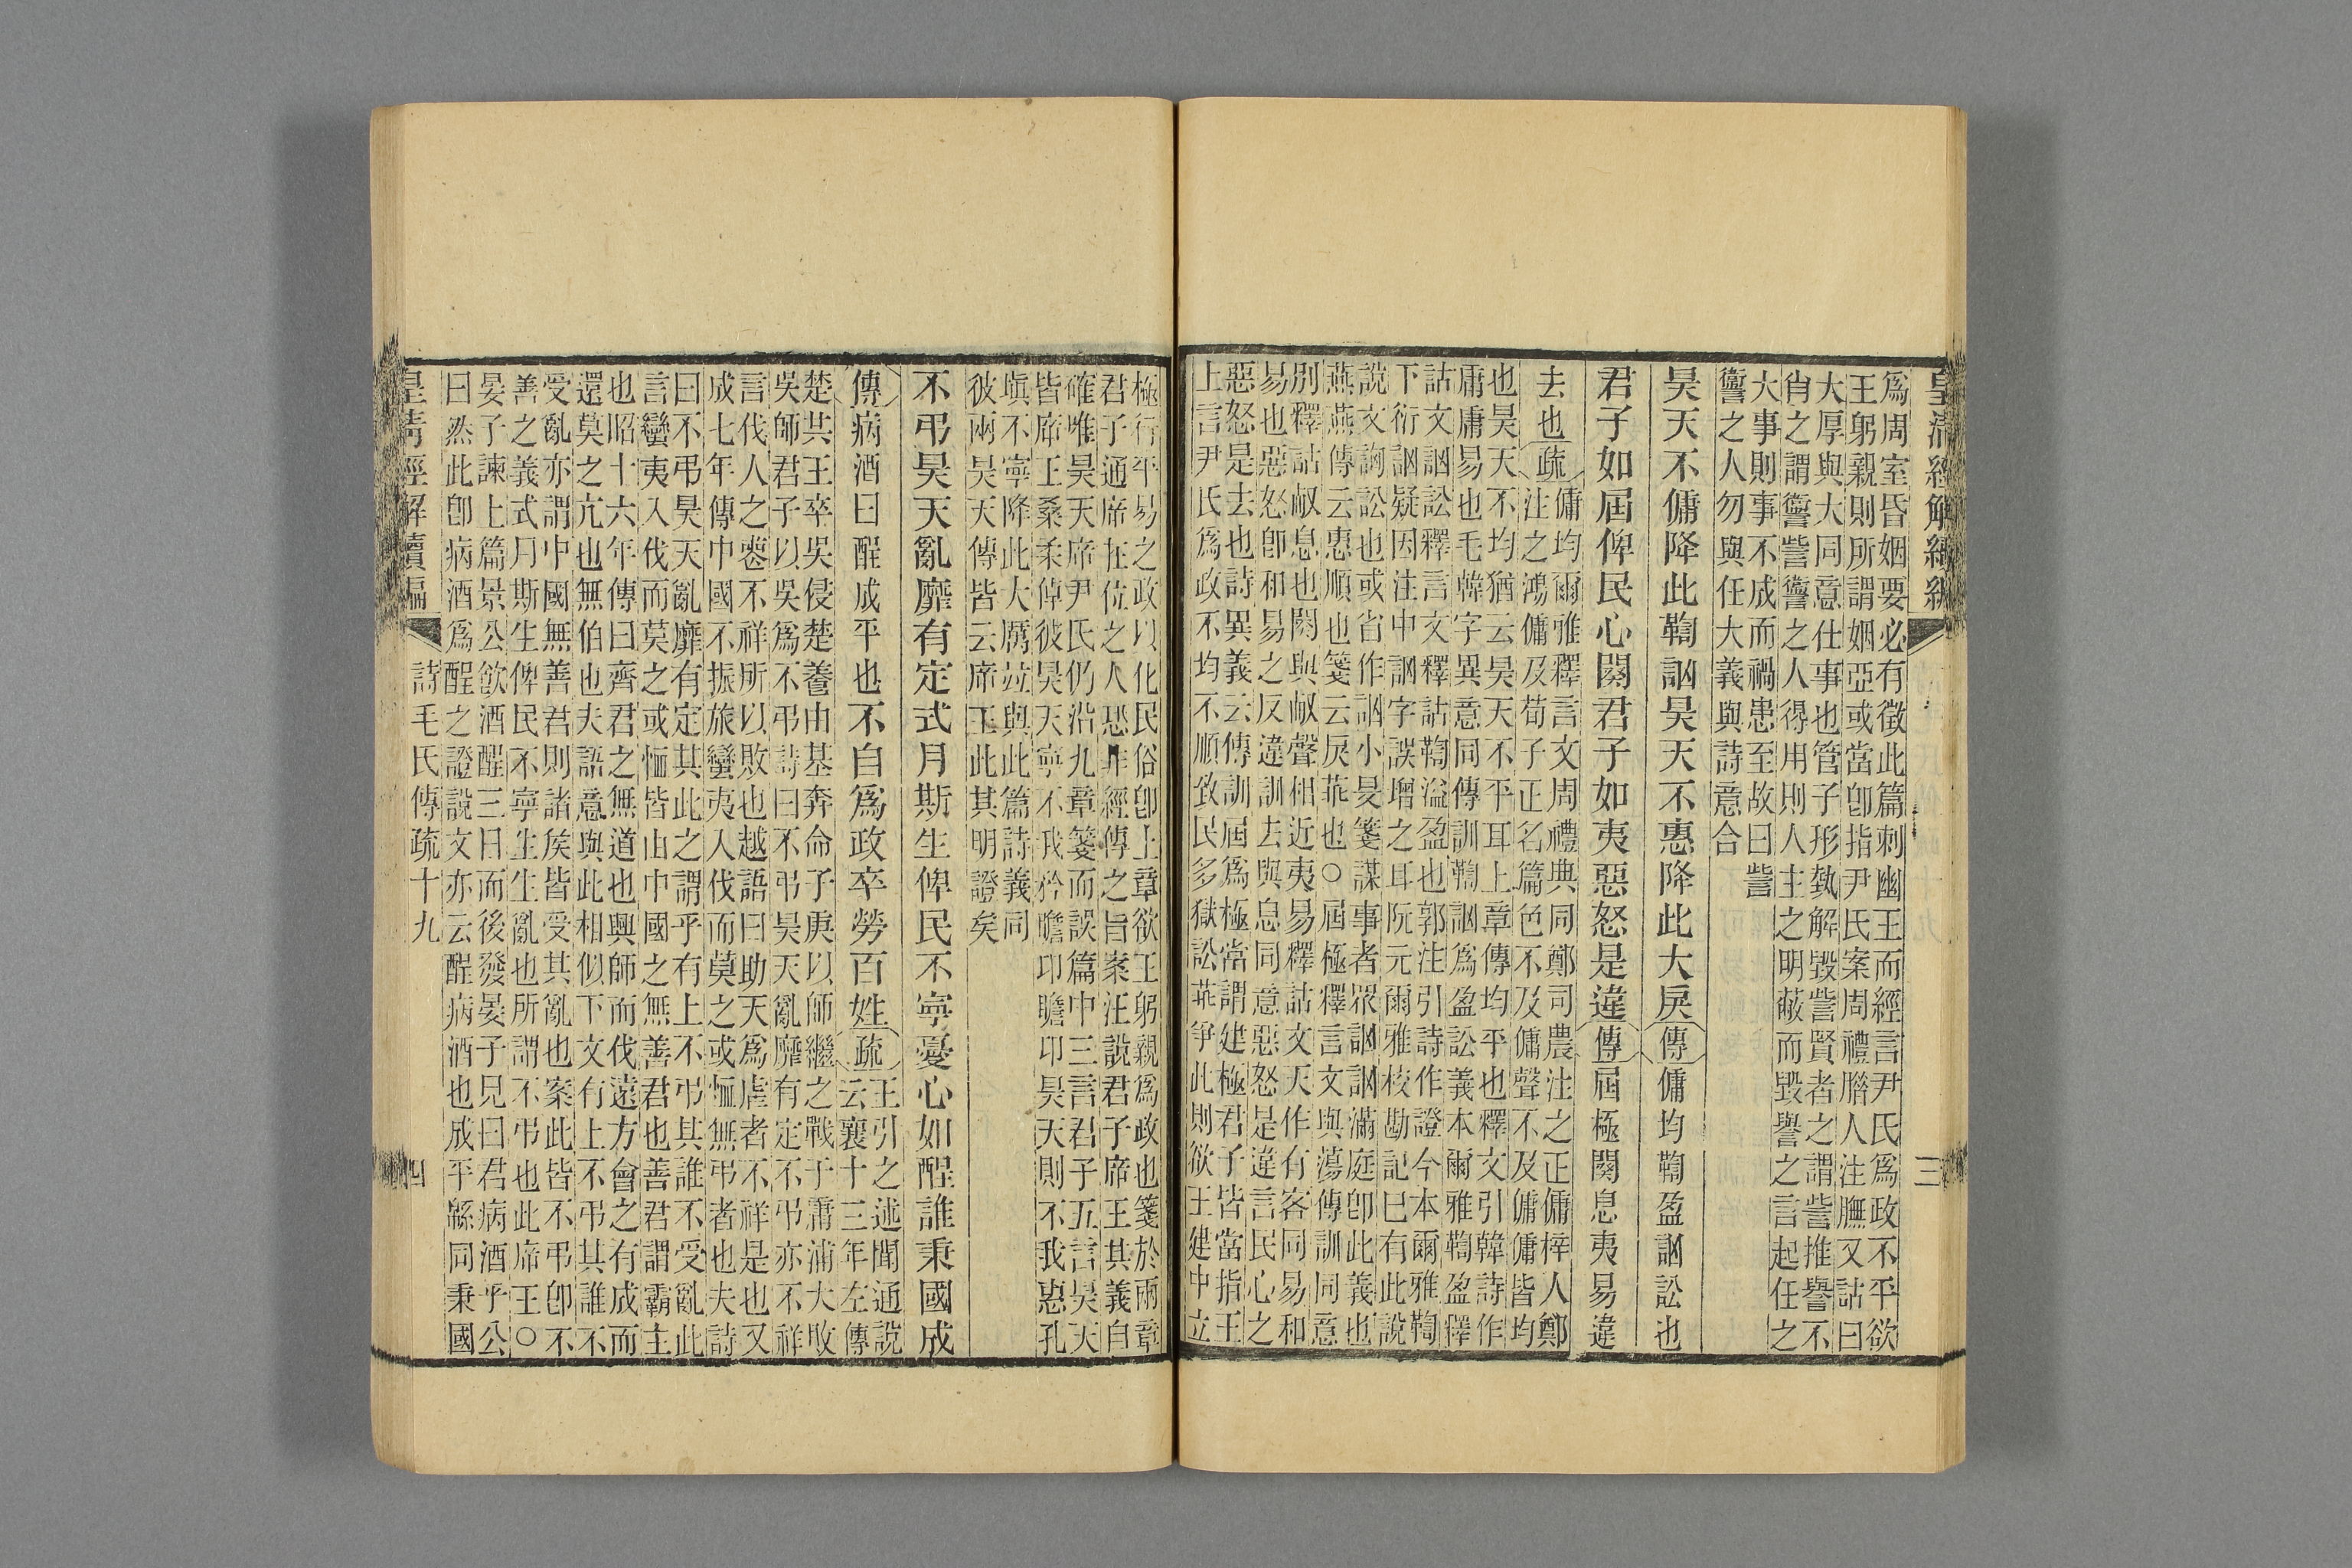 皇清經解續編 三
爲周室昏姻要必有徵此篇刺幽王而經言尹氏爲政不平欲
王躬親則所謂姻亞或當卽指尹氏案周禮腊人注膴又詁曰
大厚與大同意仕事也管子形埶解毀訾賢者之謂訾推譽不
肖之謂讆訾讆之人得用則人主之明蔽而毀譽之言起任之
大事則事不成而禍患至故曰訾
讆之人勿與任大義與詩意合
昊天不傭降此鞫訩昊天不惠降此大戾傳傭均鞫盈訩訟也
君子如屆俾民心闋君子如夷惡怒是違傳屆極闋息夷易違
去也疏傭均爾雅釋言文周禮典同鄭司農注之正傭梓人鄭
注之鴻傭及荀子正名篇色不及傭聲不及傭傭皆均
也昊天不均猶云昊天不平耳上章傳均平也釋文引韓詩作
庸庸易也毛韓字異意同傳訓鞫訩爲盈訟義本爾雅鞫盈釋
詁文訩訟釋言文釋詁鞫溢盈也郭注引詩作證今本爾雅鞫
下衍訩疑因注中訩字誤增之耳阮元爾雅校勘記巳有此說
說文詾訟也或省作訩小旻箋謀事者眾訩訩滿庭卽此義也
燕燕傳云惠順也箋云戾乖也○屆極釋言文與蕩傳訓同意
別釋詁㕞息也闋與㕞聲相近夷易釋詁文天作有客同易和
易也惡怒卽和易之反違訓去與息同意惡怒是違言民心之
惡怒是去也詩異義云傳訓屆爲極當謂建極君子皆當指王
上言尹氏爲政不均不順致民多獄訟乖爭此則欲王建中立
極行平易之政以化民俗卽上章欲王躬親爲政也箋於兩章
君子通㡿在位之人恐非經傳之旨案汪說君子㡿王其義自
確唯昊天㡿尹氏仍沿九章箋而誤篇中三言君子五言昊天
皆㡿王桑柔倬彼昊天寧不我矜瞻卬瞻卬昊天則不我惠孔
塡不寧降此大厲竝與此篇詩義同
彼兩昊天傳皆云㡿王此其明證矣
不弔昊天亂靡有定式月斯生俾民不寧憂心如酲誰秉國成
傳病酒曰酲成平也不自爲政卒勞百姓疏王引之述聞通說
云襄十三年左傳
楚共王卒吳侵楚養由基奔命子庚以師繼之戰于庸浦大敗
吳師君子以吳爲不弔詩曰不弔昊天亂靡有定不弔亦不祥
言伐人之喪不祥所以敗也越語曰助天爲虐者不祥是也又
成七年傳中國不振旅蠻夷入伐而莫之或恤無弔者也夫詩
曰不弔昊天亂靡有定其此之謂乎有上不弔其誰不受亂此
言蠻夷入伐而莫之或恤皆由中國之無善君也善君謂霸主
也昭十六年傳曰齊君之無道也興師而伐遠方會之有成而
還莫之亢也無伯也夫語意與此相似下文有上不弔其誰不
受亂亦謂中國無善君則諸矦皆受其亂也案此皆不弔卽不
善之義式月斯生俾民不寧生生亂也所謂不弔也此㡿王○
晏子諫上篇景公飮酒酲三日而後發晏子見曰君病酒乎公
曰然此卽病酒爲酲之證說文亦云酲病酒也成平緜同秉國
皇清經解續編 詩毛氏傳疏十九 四